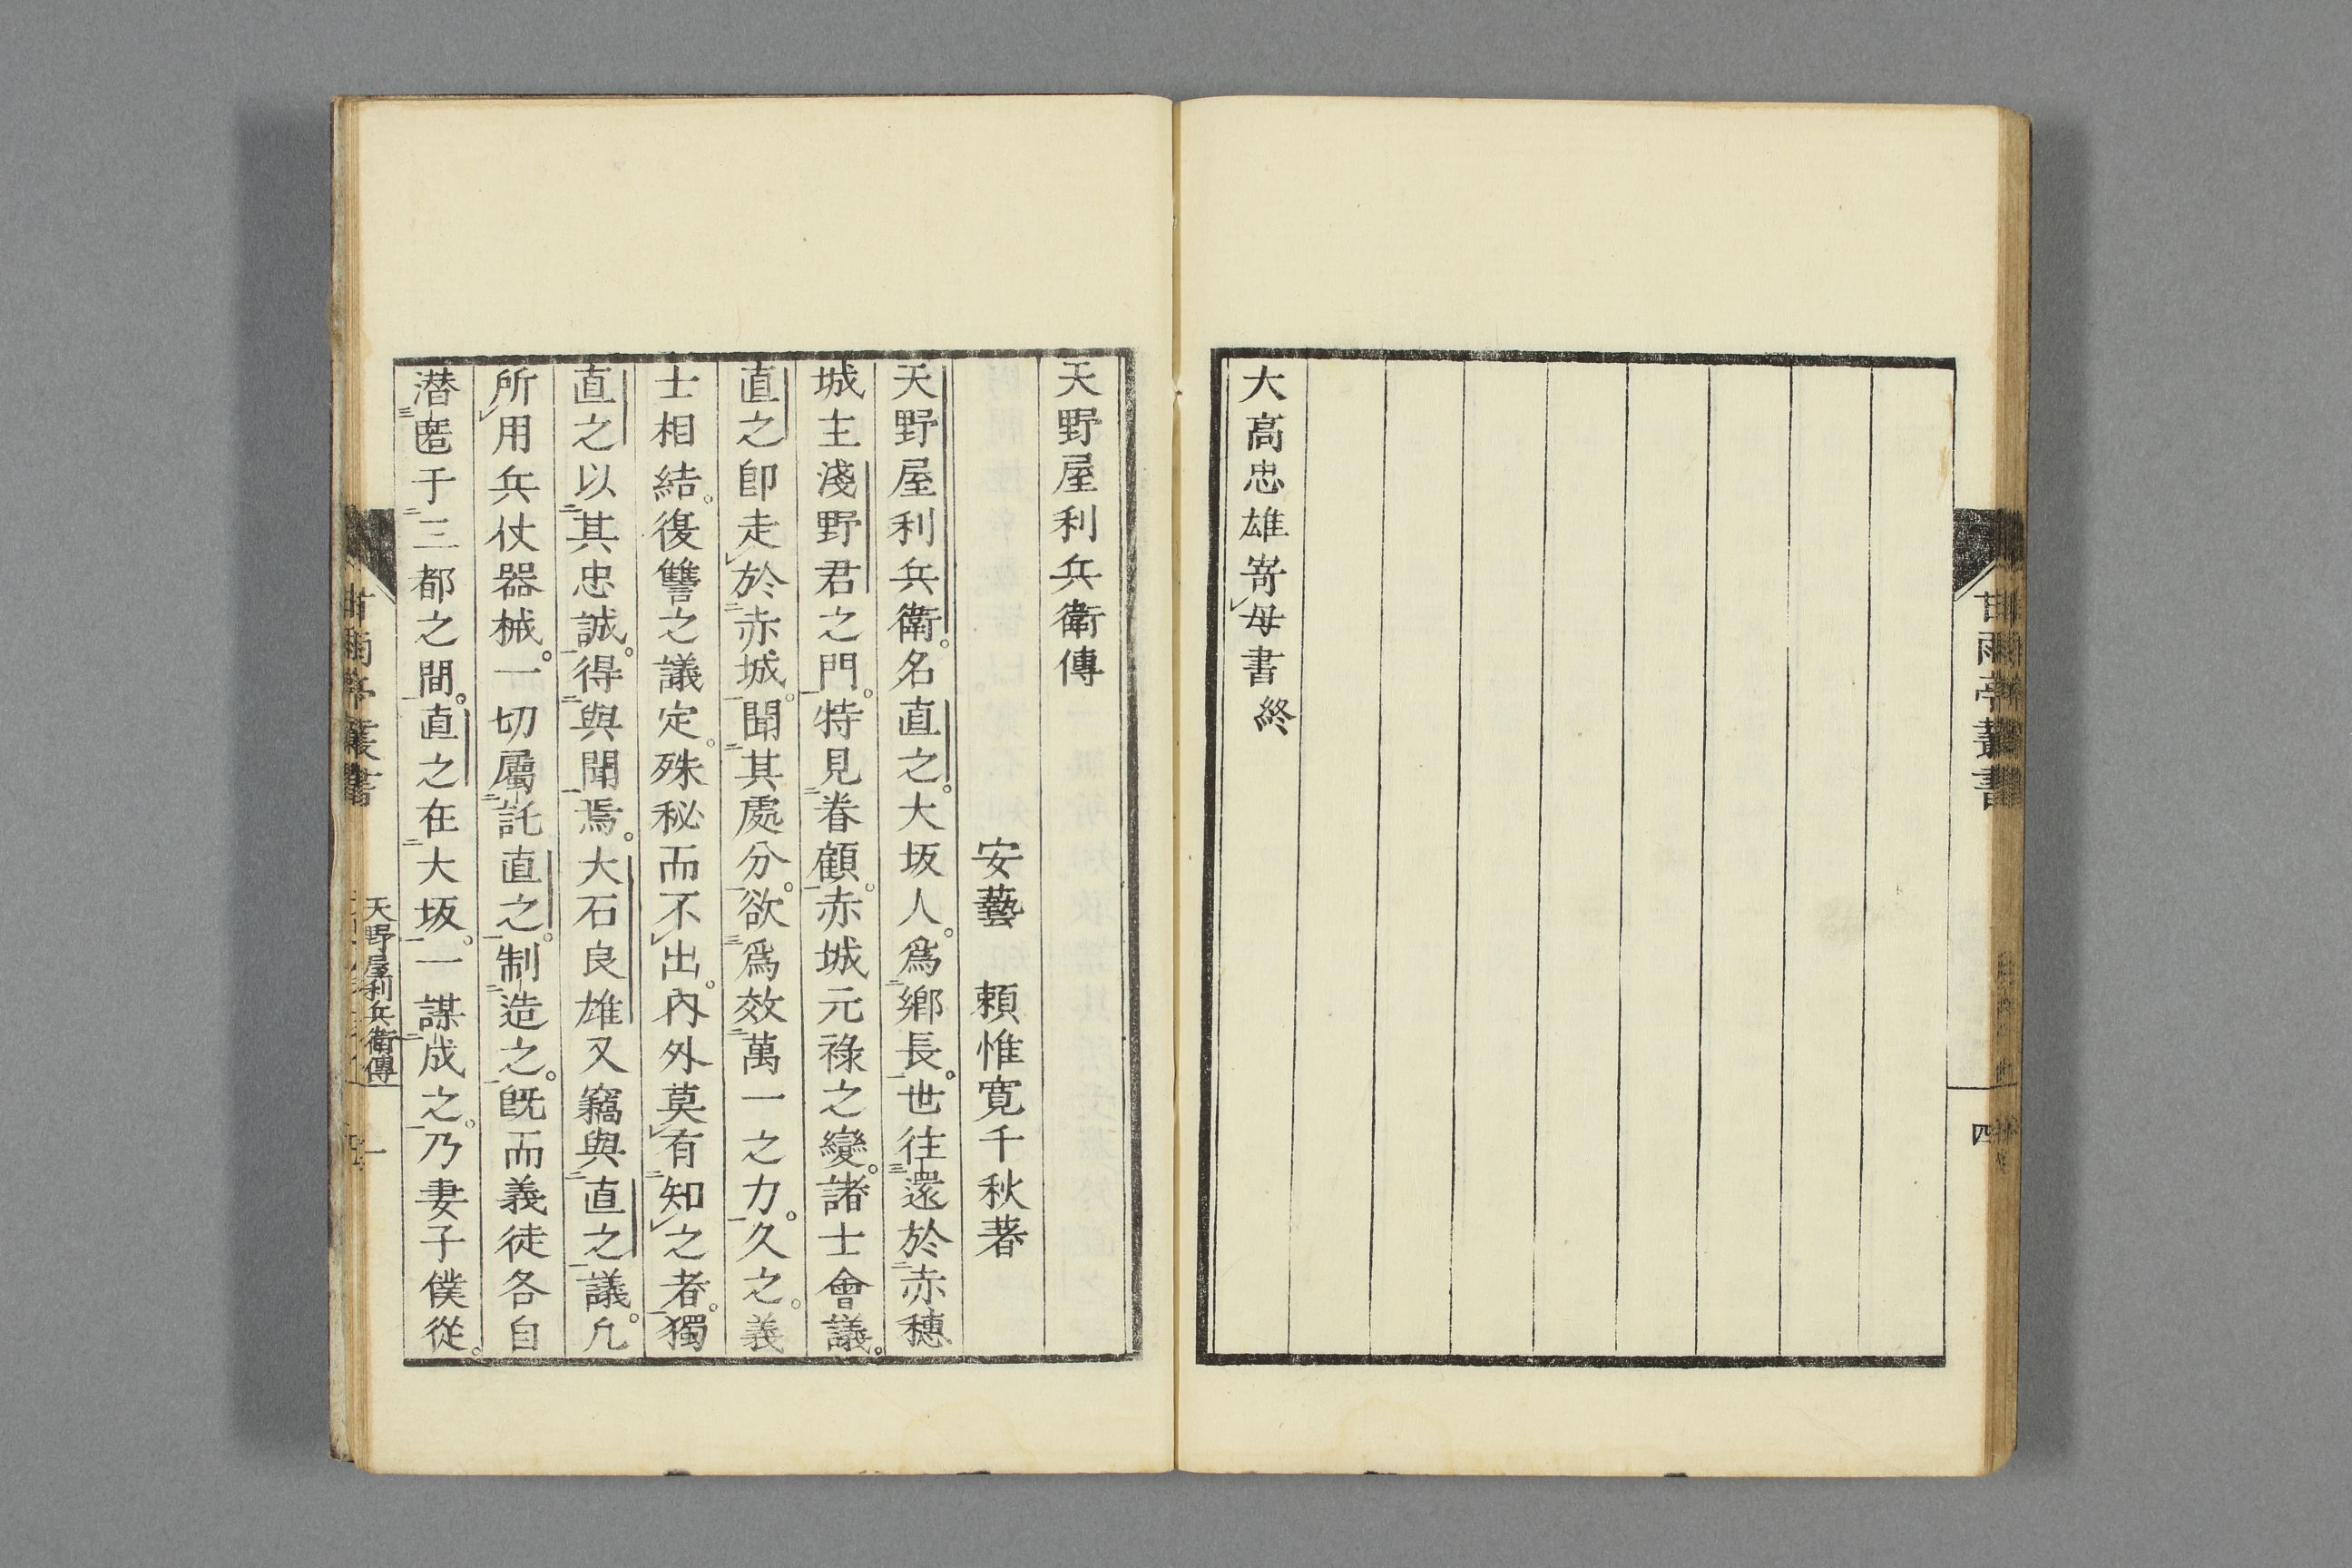 大高忠雄寄母書終
甘雨亭叢書
四
天野屋利兵衛傳
安藝　賴惟寛千秋著
天野屋利兵衛。名直之。大坂人。爲鄉長。世往還於赤穗
城主淺野君之門。特見眷顧。赤城元祿之變。諸士會議。
直之卽走於赤城。聞其處分。欲爲效萬一之力。久之。義
士相結。復讐之議定。殊秘而不出。內外莫有知之者。獨
直之以其忠誠。得與聞焉。大石良雄又竊與直之議。凢
所用兵仗器械。一切屬託直之。制造之。旣而義徒各自
潜匿于三都之間。直之在大坂。一謀成之。乃妻子僕從。
甘雨亭叢書
天野屋利兵衛傳
一